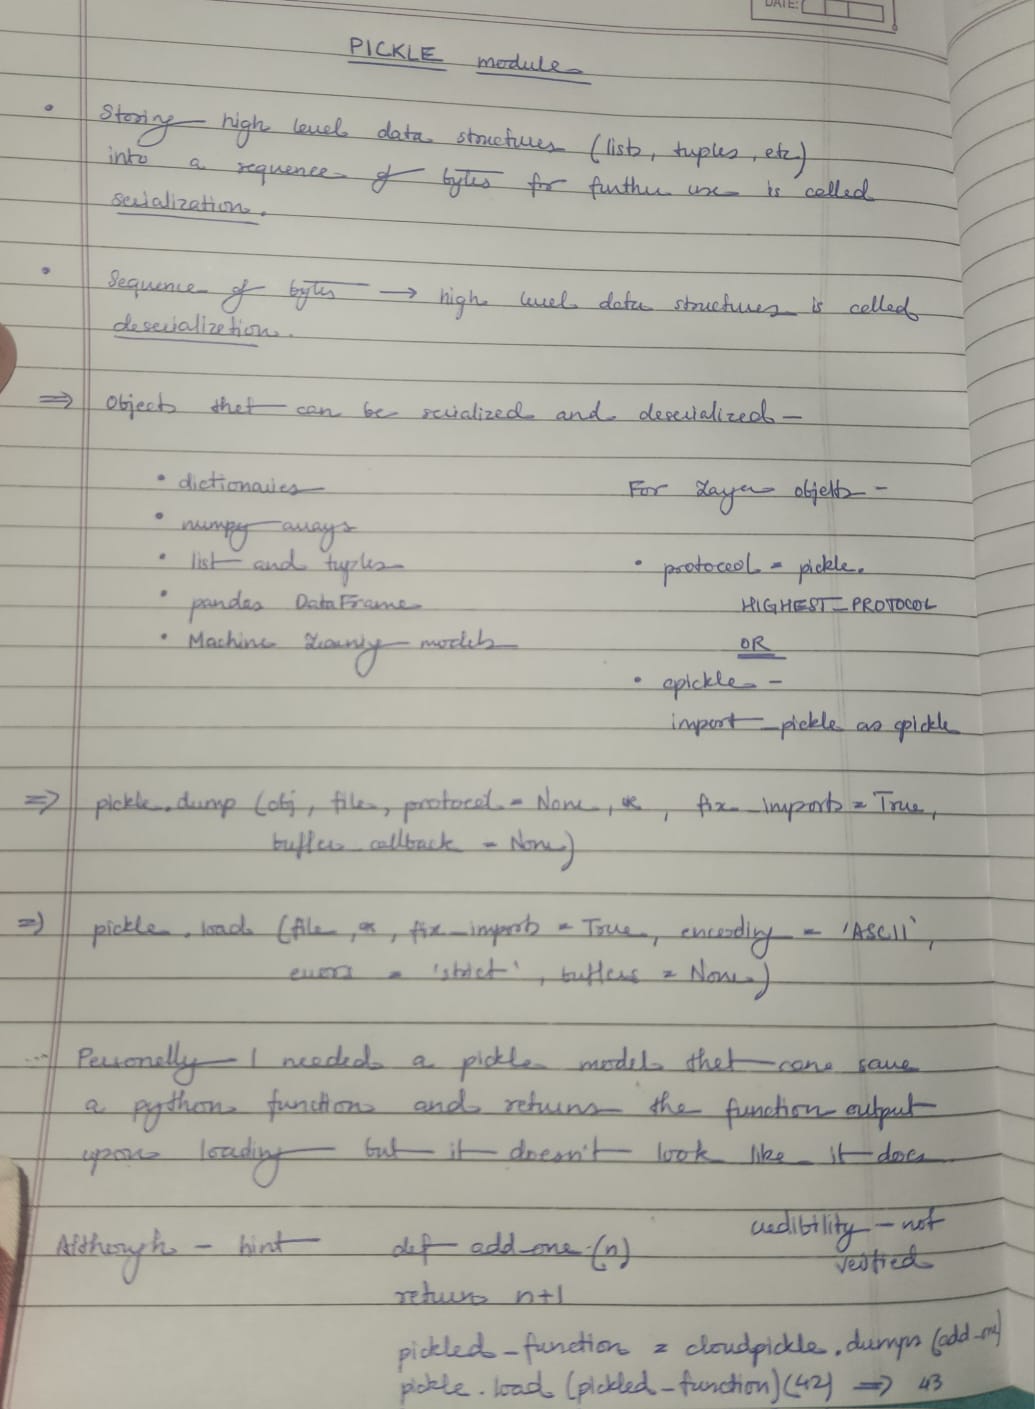 DATE:
PICKLE module
• Storing high level data structures (lists, tuples, etc)
into a sequence of bytes for further use is called
serialization.
• Sequence of bytes → high level data structures is called
deserialization.
⇒ Objects that can be serialized and deserialized -
• dictionaries
• numpy arrays
• list and tuples
• pandas DataFrame
• Machine Learning models
For Larger objects -
• protocol = pickle.
HIGHEST_PROTOCOL
OR
• cpickle -
import _pickle as cpickle
⇒ pickle.dump (obj, file, protocol = None, *, fix_imports = True,
buffer_callback = None)
⇒ pickle.load (file, *, fix_imports = True, encoding = 'ASCII',
errors = 'strict', buffers = None)
... Personally I needed a pickle model that can save
a python function and returns the function output
upon loading but it doesn't look like it does
Although - hint
credibility - not
verified
def add_one (n)
return n+1
pickled_function = cloudpickle.dumps (add_one)
pickle.load (pickled_function)(42) ⇒ 43